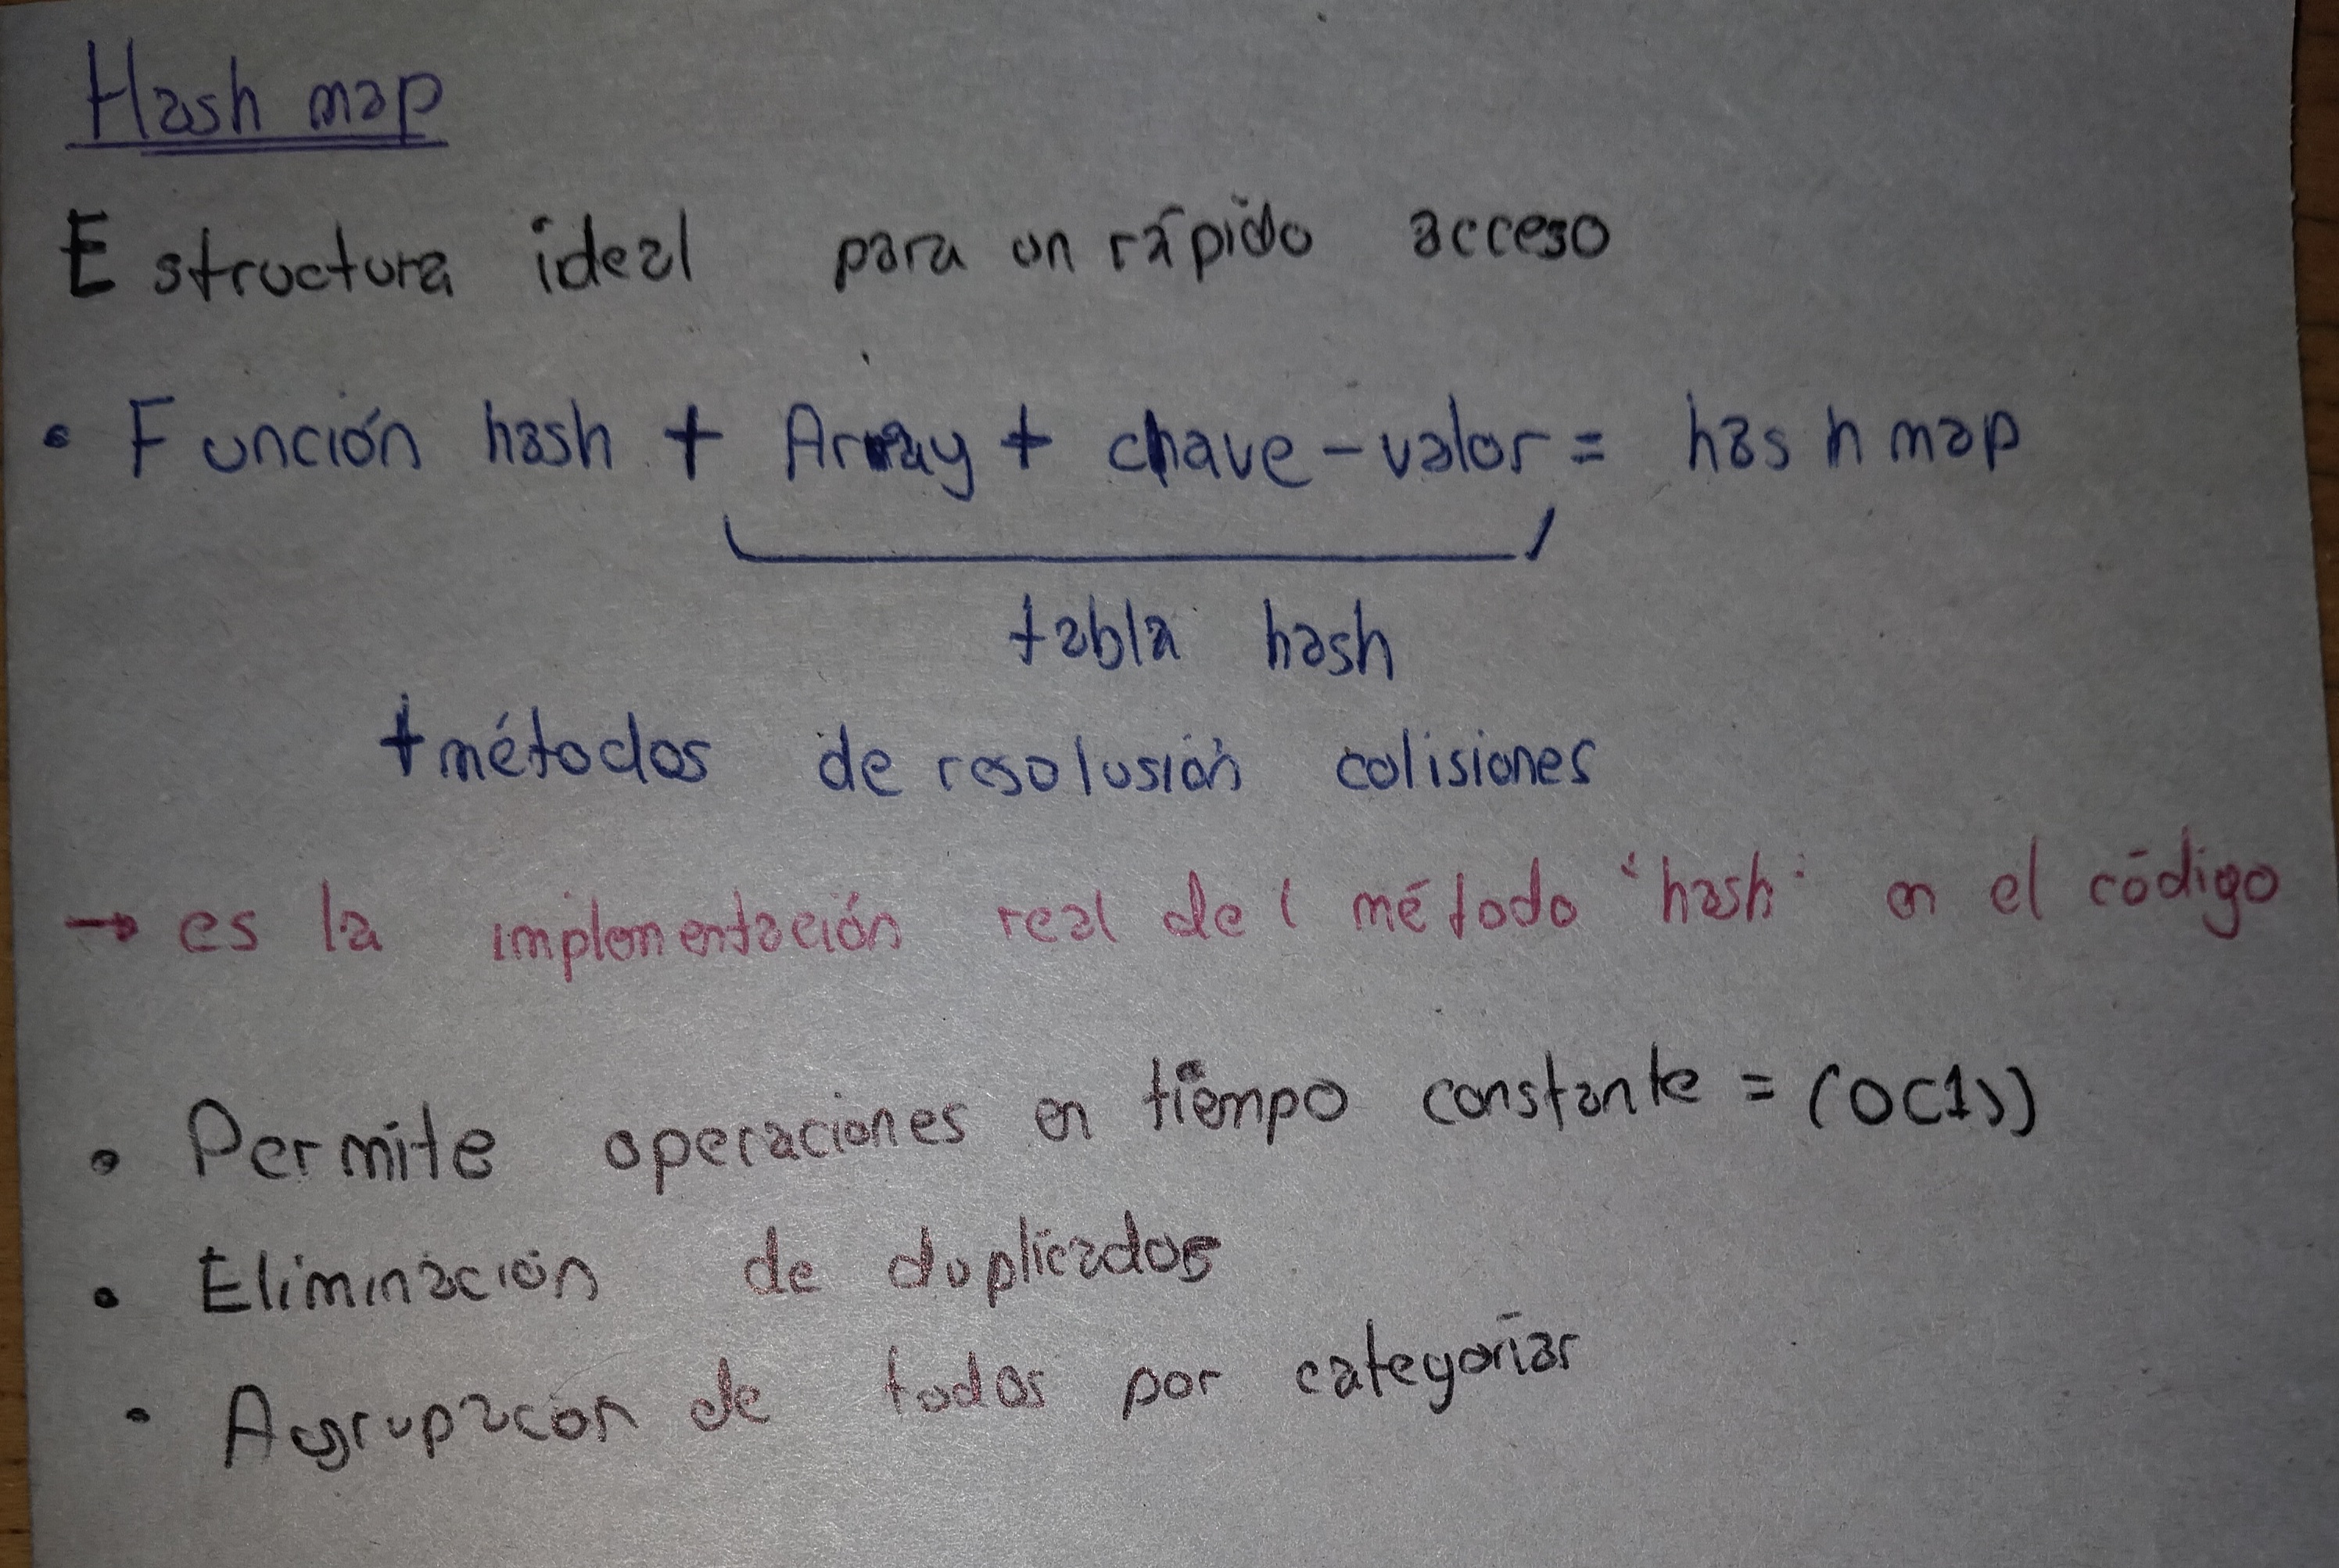 Hash map
Estructura ideal para un rápido acceso
• Función hash + Array + chave-valor = hash map
tabla hash
+ métodos de resolusión colisiones
→ es la implementación real del método "hash" en el código
• Permite operaciones en tiempo constante = (O(1))
• Eliminación de duplicados
• Agrupacion de todos por categorías